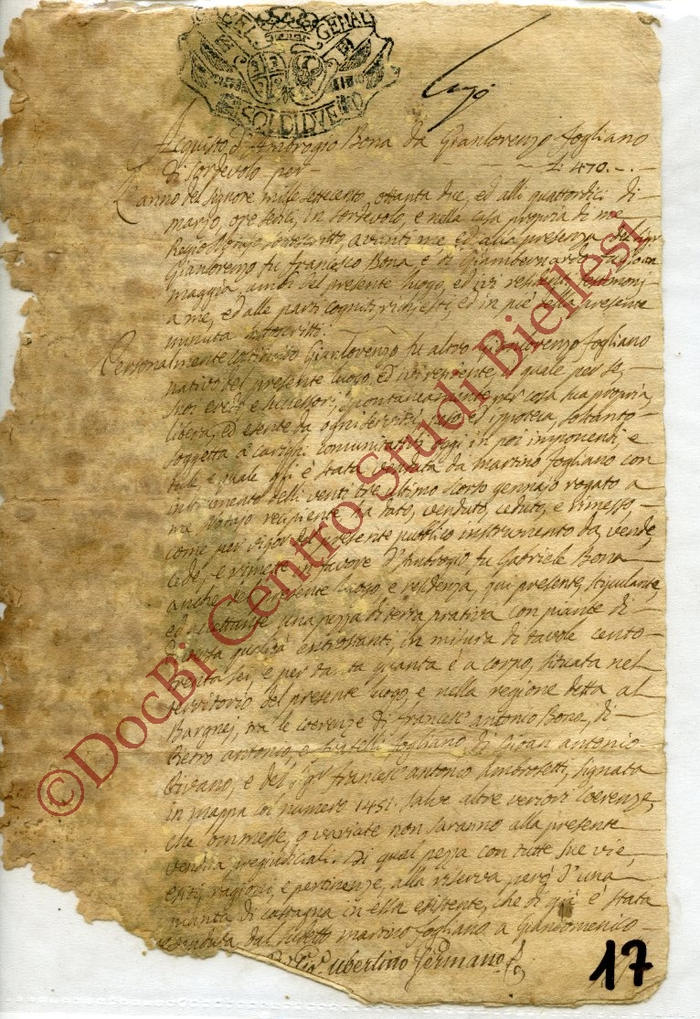 GENAL
SOLDI DVE
Acquisto d'Ambrogio Bona da Gianlorenzo Fogliano
di Sordevolo per L 470.-.
L'anno del Signore mille settecento, ottanta due, ed alli quattordici di
marzo, in Sordevolo, e nella casa propria di me
Regio Notajo sottoscritto, avanti me, ed alla presenza
Gianlorenzo fu Francesco Bona, e di Giambernardo
maggia, ambi del presente luogo, ed ivi residenti, testimonj
a me, ed alle parti cogniti, richiesti, ed in piè della presente
minuta sottoscritti.
Personalmente costituito Gianlorenzo fu altro Gianlorenzo Fogliano
nativo del presente luogo, ed ivi residente, il quale per se,
suoi eredi e successori, spontaneamente per cosa sua propria,
libera, ed esente da ogni servitù, ed ipoteca, soltanto
soggetta a carighi comunitativi oggi in poi imponendi, e
tale e quale gli è stata venduta da martino Fogliano con
instrumento delli venti tre ultimo scorso gennajo rogato a
me Notajo recipiente ha dato, venduto, ceduto, e rimesso,
come per vigor del presente pubblico instrumento da, vende,
cede, e rimette in favore d'Ambrogio fu Gabriele Bona
anche del presente luogo, e residenza, qui presente, stipulante,
ed accettante una pezza di terra prativa con piante di
entrostanti, in misura di tavole cento
trenta sei, e per da ta quanta è a corpo, situata nel
territorio del presente luogo, e nella regione detta al
Bargnej, tra le coerenze di Francesc' antonio Bona, di
Pietro antonio, e fratelli Fogliano, di Gioan antonio
e del Sigr Francesc' antonio Ambrosetti, signata
in mappa col numero 1451. salve altre veriori coerenze,
che ommesse, o variate non saranno alla presente
vendita pregiudiciali. Di qual pezza con tutte sue vie,
ragioni, e pertinenze, alla riserva però d'una
pianta di castagna in essa esistente, che di già è stata
venduta dal suddetto martino Fogliano a Giandomenico
Ubertino Germano
17
©DocBi Centro Studi Biellesi